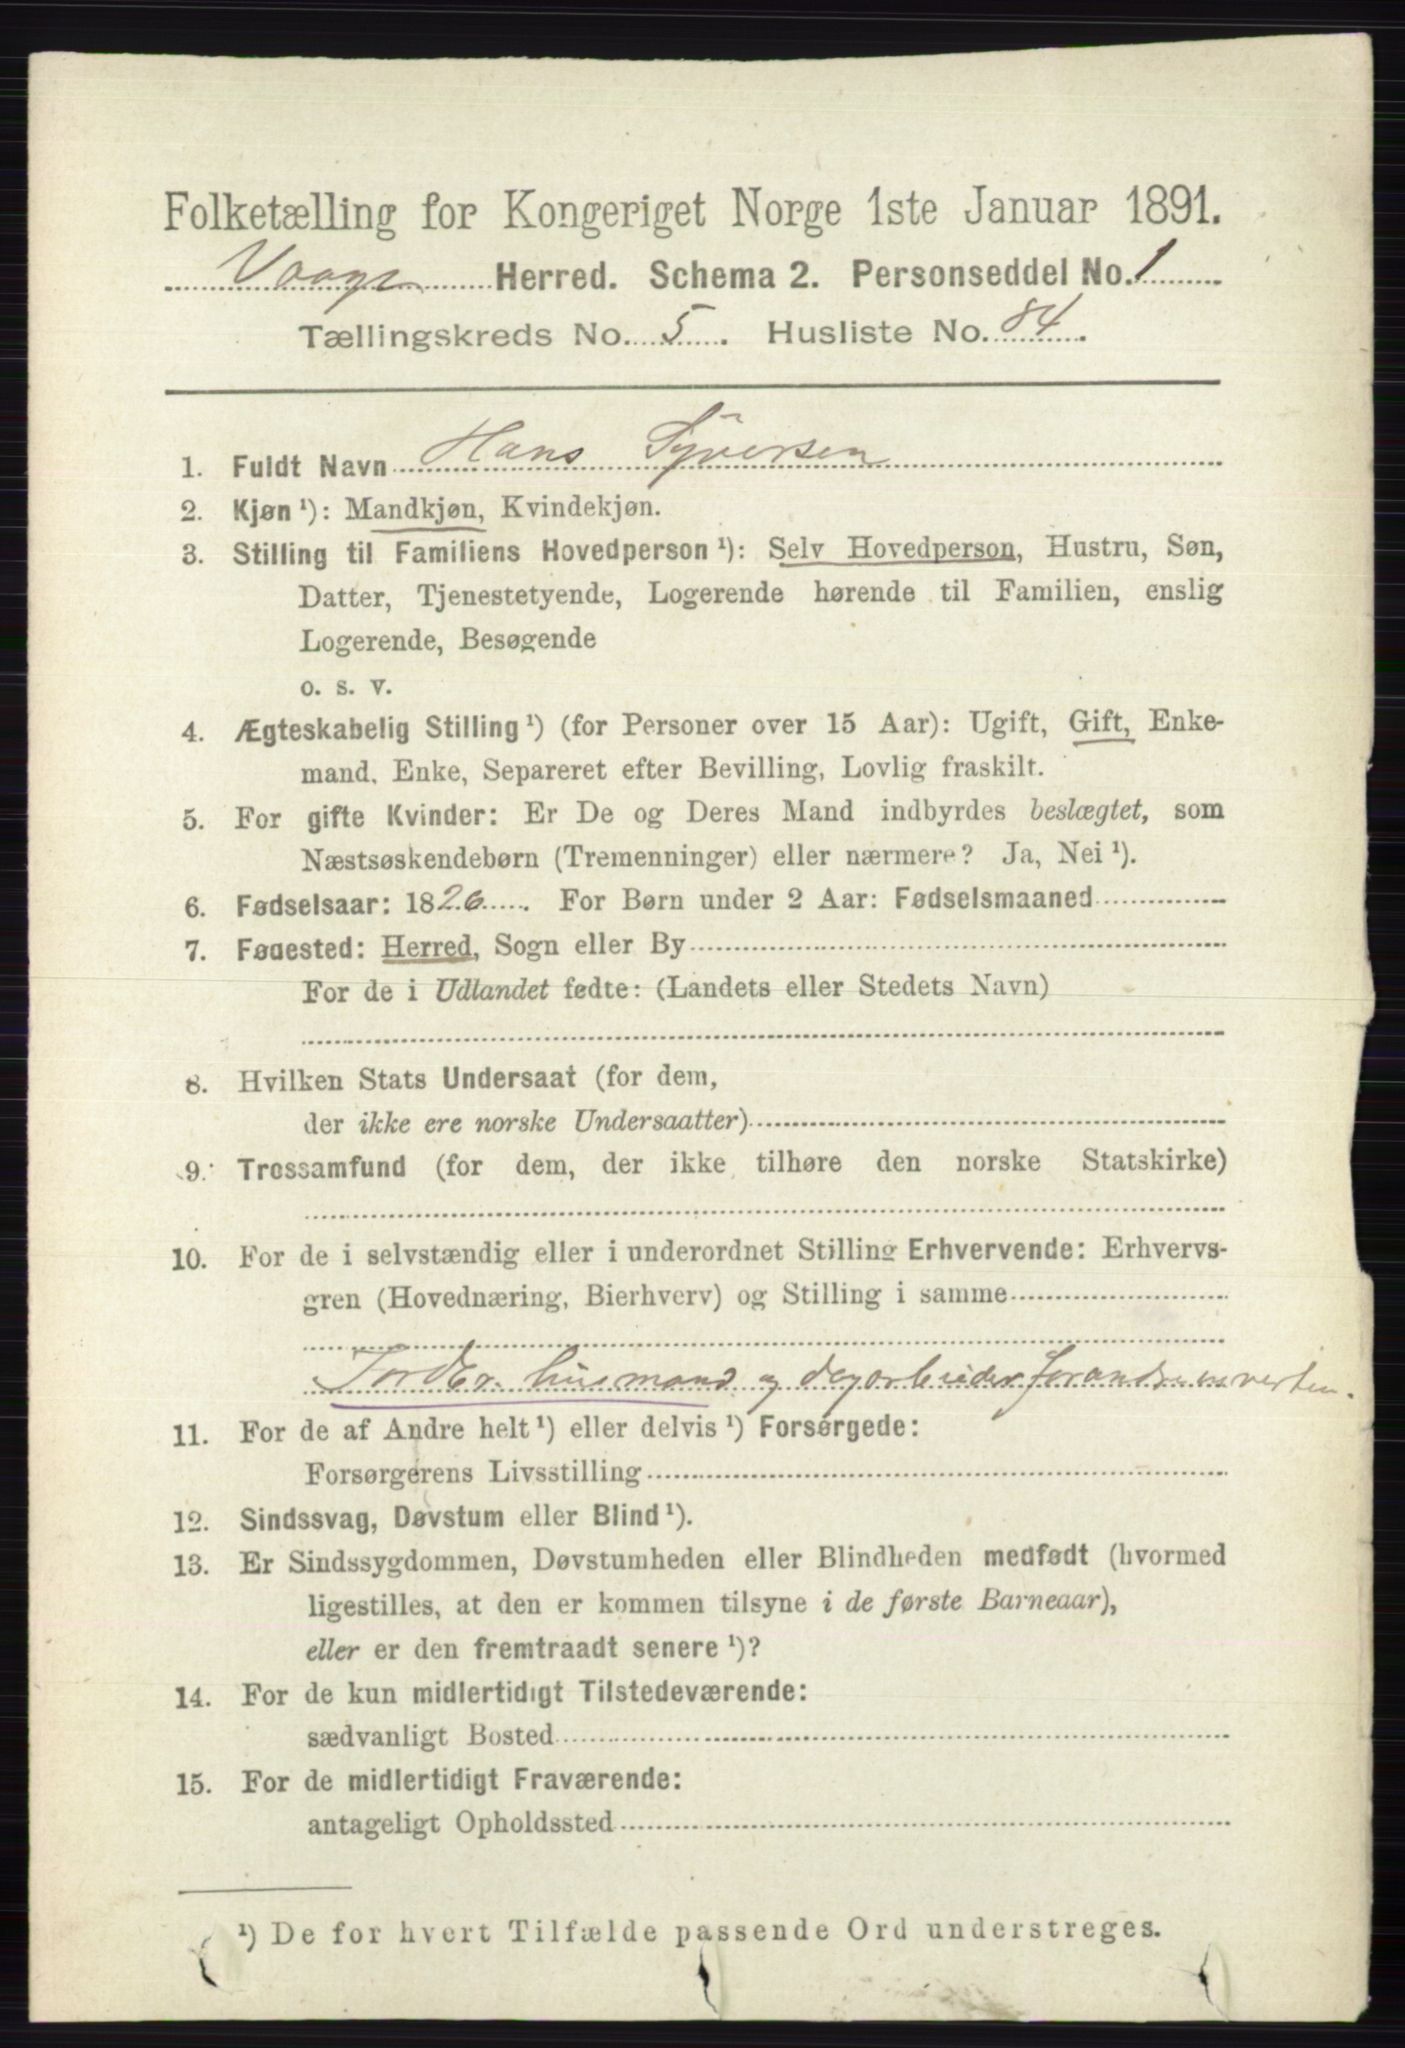 Folketælling for Kongeriget Norge 1ste Januar 1891.
Vaage Herred. Schema 2. Personseddel No. 1
Tællingskreds No. 5. Husliste No. 84.
1. Fuldt Navn Hans Syversen
2. Kjøn ¹): Mandkjøn, Kvindekjøn.
3. Stilling til Familiens Hovedperson ¹): Selv Hovedperson, Hustru, Søn,
Datter, Tjenestetyende, Logerende hørende til Familien, enslig
Logerende, Besøgende
o. s. v.
4. Ægteskabelig Stilling ¹) (for Personer over 15 Aar): Ugift, Gift, Enke-
mand, Enke, Separeret efter Bevilling, Lovlig fraskilt.
5. For gifte Kvinder: Er De og Deres Mand indbyrdes beslægtet, som
Næstsøskendebørn (Tremenninger) eller nærmere? Ja, Nei ¹).
6. Fødselsaar: 1826. For Børn under 2 Aar: Fødselsmaaned
7. Fødested: Herred, Sogn eller By
For de i Udlandet fødte: (Landets eller Stedets Navn)
8. Hvilken Stats Undersaat (for dem,
der ikke ere norske Undersaatter)
9. Trossamfund (for dem, der ikke tilhøre den norske Statskirke)
10. For de i selvstændig eller i underordnet Stilling Erhvervende: Erhvervs-
gren (Hovednæring, Bierhverv) og Stilling i samme
husmand og dagarbeider for
11. For de af Andre helt ¹) eller delvis ¹) Forsørgede:
Forsørgerens Livsstilling
12. Sindssvag, Døvstum eller Blind ¹).
13. Er Sindssygdommen, Døvstumheden eller Blindheden medfødt (hvormed
ligestilles, at den er kommen tilsyne i de første Barneaar),
eller er den fremtraadt senere ¹)?
14. For de kun midlertidigt Tilstedeværende:
sædvanligt Bosted
15. For de midlertidigt Fraværende:
antageligt Opholdssted
¹) De for hvert Tilfælde passende Ord understreges.